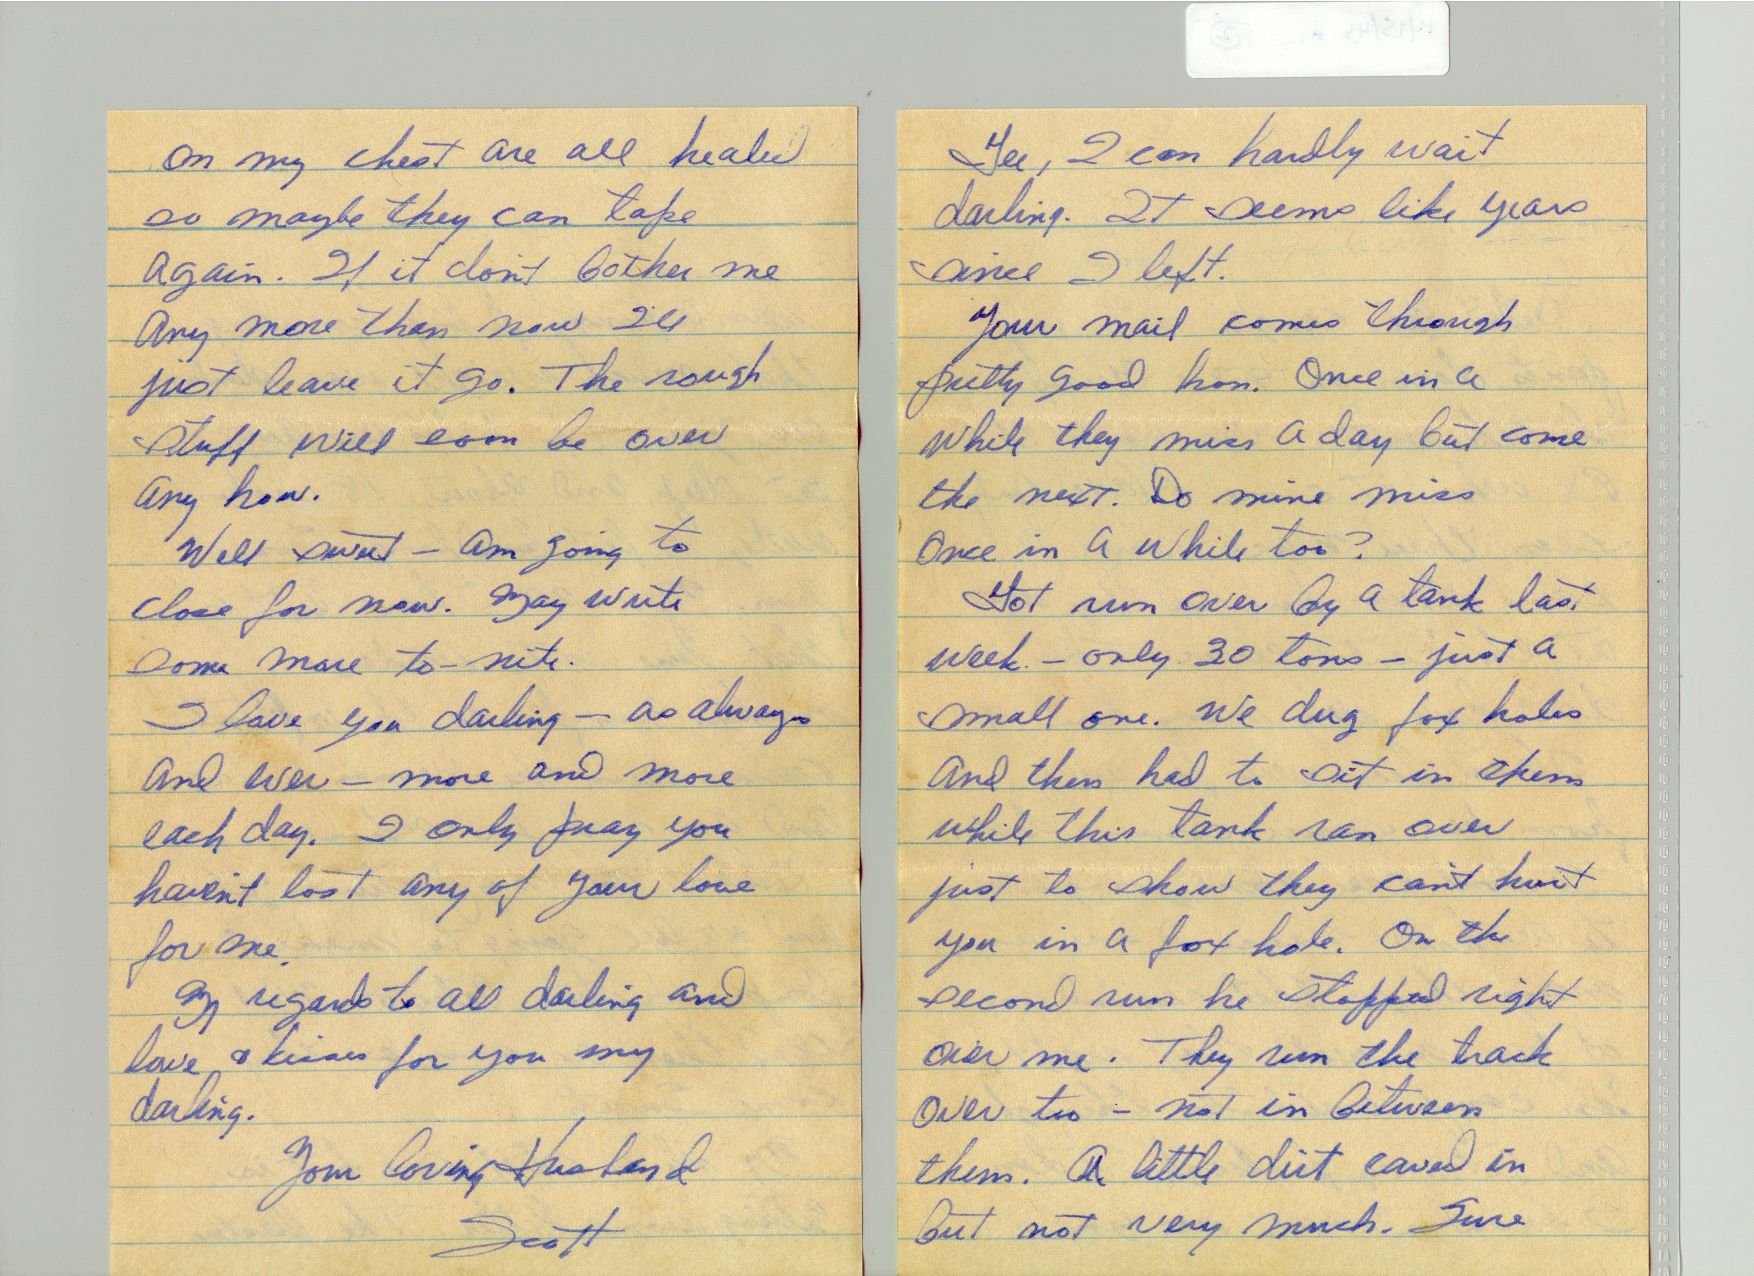 on my chest are all healed
so maybe they can tape
again. If it don't bother me
any more than now I'll
just leave it go. The rough
stuff will soon be over
any how.
Well sweet – am going to
close for now. May write
some more to-nite.
I love you darling – as always
and ever – more and more
each day. I only pray you
haven't lost any of your love
for me.
My regards to all darling and
love & kisses for you my
darling.
Your loving Husband
Scott
Gee, I can hardly wait
darling. It seems like years
since I left.
Your mail comes through
pretty good hon. Once in a
while they miss a day but come
the next. Do mine miss
once in a while too?
Got run over by a tank last
week – only 30 tons – just a
small one. We dug fox holes
and then had to sit in them
while this tank ran over
just to show they can't hurt
you in a fox hole. On the
second run he stopped right
over me. They run the track
over too – not in between
them. A little dirt caved in
but not very much. Sure